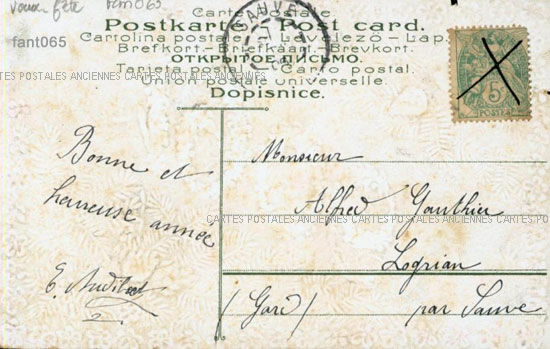 voeux fête fant065
fant065
Carte postale
Postkarte Post card.
Cartolina postale Levelező-Lap.
Brefkort Briefkaart Brevkort.
ОТКРЫТОЕ ПИСЬМО.
Tarjeta postal Carto postal.
CARTES POSTALES ANCIENNES CARTES POSTALES ANCIENNES CARTES POSTALES ANCIENNES CARTES POSTALES ANCIENNES CP
Union postale universelle.
Dopisnice.
SAUVE
5c
POSTES
Bonne et
heureuse année
Monsieur
Alfred Gauthier
CARTES POSTALES ANCIENNES CARTES POSTALES ANCIENNES CP
Logrian
(Gard) par Sauve